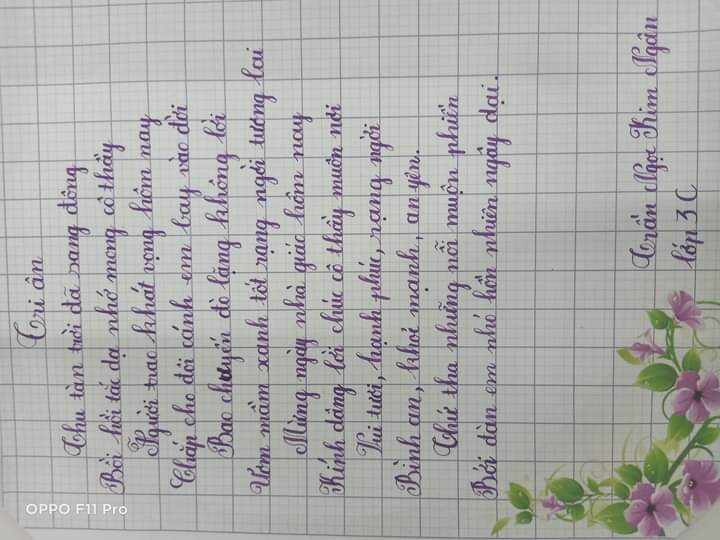 Tri ân
Thu tàn trời đã sang đông
Bồi hồi tấc dạ nhớ mong cô thầy
Người trao khát vọng hôm nay
Chắp cho đôi cánh em bay vào đời
Bao chuyến đò lặng không lời
Ươm mầm xanh tốt rạng ngời tương lai
Mừng ngày nhà giáo hôm nay
Kính dâng lời chúc cô thầy muôn nơi
Vui tươi, hạnh phúc, rạng ngời
Bình an, khỏe mạnh, an yên.
Thứ tha những nỗi muộn phiền
Bởi đàn em nhỏ hồn nhiên ngây dại.
Trần Ngọc Kim Ngân
lớp 3C
OPPO F11 Pro